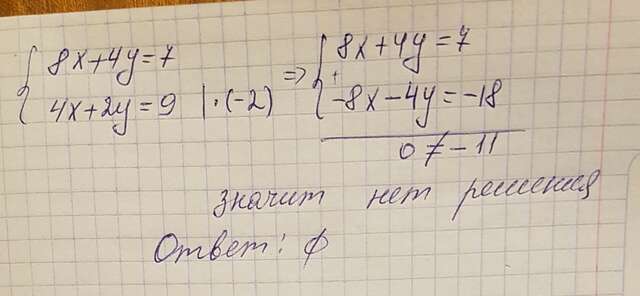 { 8x+4y=7
4x+2y=9 | ·(-2) => { 8x+4y=7
+
-8x-4y=-18
0≠-11
значит нет решения
Ответ: ∅